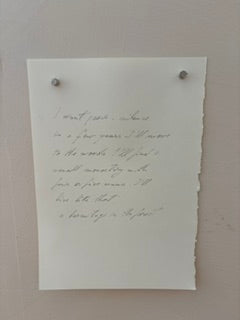 I want peace, silence
in a few years I'll move
to the woods. I'll find a
small monastery with
four or five nuns. I'll
live like that
in the forest